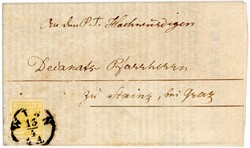 An den P.T. Hochwürdigen
Decanats Pfarrherrn
zu Stainz, bei Graz
WIEN
13
4